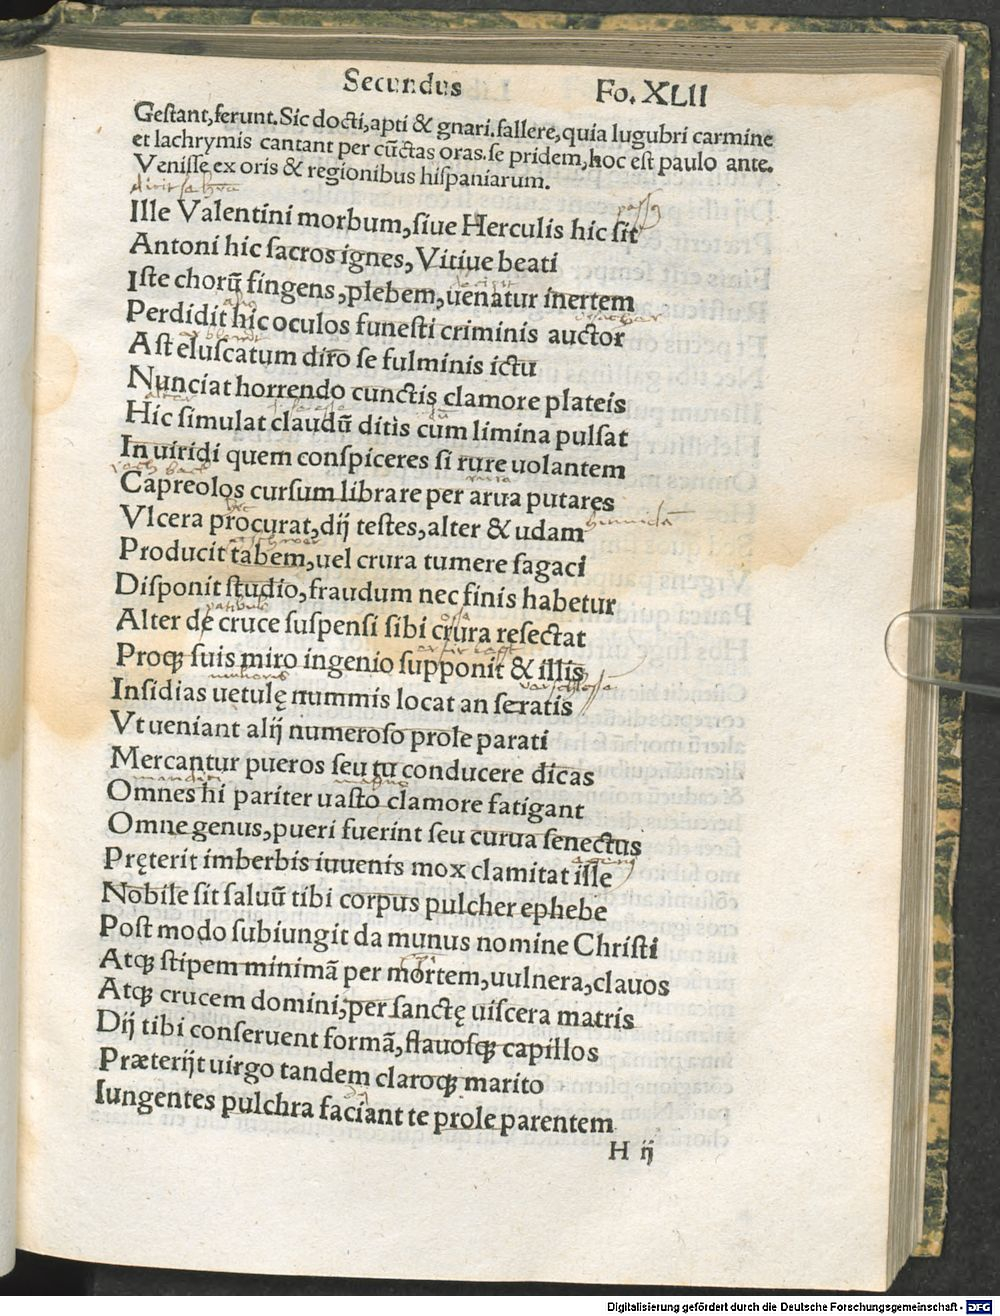 Secundus Fo. XLII
Gestant, ferunt. Sic docti, apti & gnari. fallere, quia lugubri carmine
et lachrymis cantant per cūctas oras. se pridem, hoc est paulo ante.
Venisse ex oris & regionibus hispaniarum.
Ille Valentini morbum, siue Herculis hic sit
Antoni hic sacros ignes, Vitiue beati
Iste chorū fingens, plebem, uenatur inertem
Perdidit hic oculos funesti criminis auctor
Ast eluscatum diro se fulminis ictu
Nunciat horrendo cunctis clamore plateis
Hic simulat claudū ditis cum limina pulsat
In uiridi quem conspiceres si rure uolantem
Capreolos cursum librare per arua putares
Vlcera procurat, dij testes, alter & udam
humidā
Producit tabem, uel crura tumere sagaci
Disponit studio, fraudum nec finis habetur
patibulo ossa
Alter de cruce suspensi sibi crura resectat
Proqꝫ suis miro ingenio supponit & illis
Insidias uetulę nummis locat an seratis
Vt ueniant alij numeroso prole parati
Mercantur pueros seu tu conducere dicas
Omnes hi pariter uasto clamore fatigant
Omne genus, pueri fuerint seu curua senectus
Pręterit imberbis iuuenis mox clamitat ille
Nobile sit saluū tibi corpus pulcher ephebe
Post modo subiungit da munus nomine Christi
Atqꝫ stipem minimā per mortem, uulnera, clauos
Atqꝫ crucem domini, per sanctę uiscera matris
Dij tibi conseruent formā, flauosqꝫ capillos
Præterijt uirgo tandem claroqꝫ marito
Iungentes pulchra faciant te prole parentem
H ij
Digitalisierung gefördert durch die Deutsche Forschungsgemeinschaft - DFG